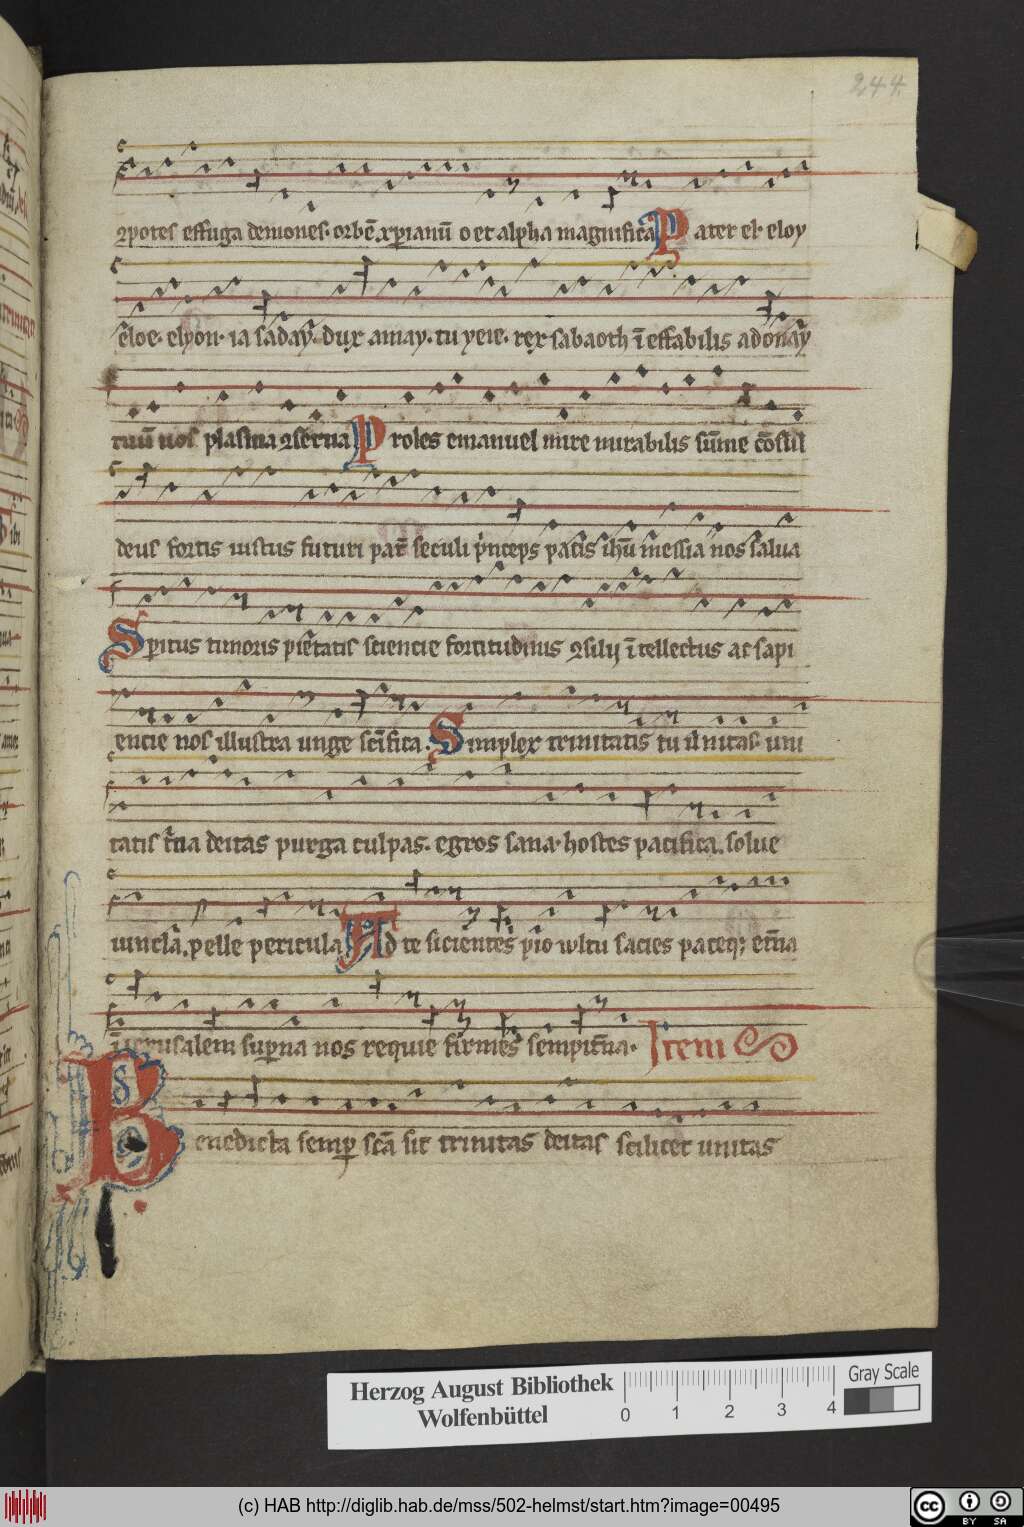 244.
ꝯpotes effuga demones· orbē xp̄ianū o et alpha magnifica Pater el· eloy
eloe· elyon· ia saday· dux amay· tu yeie· rex sabaoth īeffabilis adonay
tuū nos plasma ꝯserua Proles emanuel mire mirabilis sūme cōsul
deus fortis iustus futuri patr̄ seculi p̄nceps pacis ihū messia nos salua
Spiritus timoris pietatis sciencie fortitudinis ꝯsilij ītellectus ac sapi
encie nos illustra unge sc̄ifica· Simplex trinitatis tu unitas· uni
tatis t̄na deitas purga culpas· egros sana· hostes pacifica· solue
iuncla· pelle pericula Ad te sicientes pio wltu sacies pateq; et̄na
ierusalem sup̄na nos requie firmes sempit̄na· Item
Benedicta semp scā sit trinitas deitas scilicet unitas
Herzog August Bibliothek
Wolfenbüttel
0 1 2 3 4
Gray Scale
(c) HAB http://diglib.hab.de/mss/502-helmst/start.htm?image=00495
cc BY SA